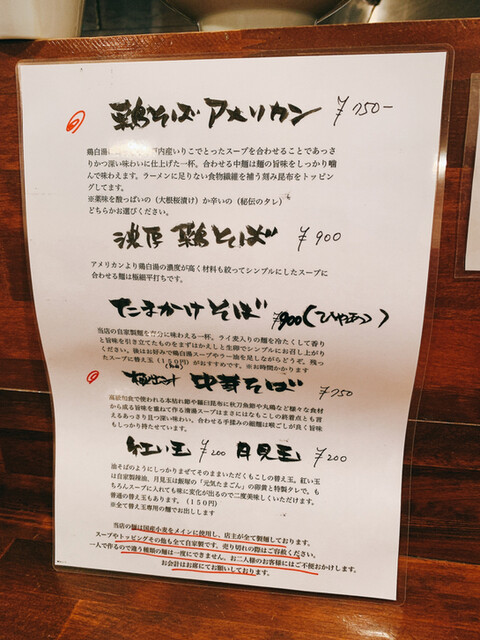 鶏そばアメリカン ¥750-
鶏白湯に 戸内産いりこでとったスープを合わせることであっさ
りかつ深い味わいに仕上げた一杯。合わせる中麺は麺の旨味をしっかり噛
んで味わえます。ラーメンに足りない食物繊維を補う刻み昆布をトッピン
グしてます。
※薬味を酸っぱいの(大根桜漬け)か辛いの(秘伝のタレ)
どちらかお選びください。
濃厚鶏そば ¥900
アメリカンより鶏白湯の濃度が高く材料も絞ってシンプルにしたスープに
合わせる麺は極細平打ちです。
たまかけそば ¥900(ひやあつ)
当店の自家製麺を存分に味わえる一杯。ライ麦入りの麺を冷たくして香り
と旨味を引き立てたものをまずはかえしと生卵でシンプルにお召し上がり
ください。後はお好みで鶏白湯スープやラー油を足しながらどうぞ。残っ
たスープに替え玉(150円)がおすすめです。※お時間かかります
中華そば ¥750
高級和食で使われる本枯れ節や羅臼昆布に秋刀魚節や丸鶏など様々な食材
から成る旨味を重ねて作る清湯スープはまさにはなもこしの終着点とも言
えるあっさり且つ深い味わい。合わせる手揉みの細麺は喉ごしが良く旨味
もしっかり持たせています。
紅い玉 ¥200 月見玉 ¥200
油そばのようにしっかりまぜてそのままいただくもこしの替え玉。紅い玉
は自家製辣油、月見玉は飯塚の「元気たまごん」の卵黄と特製タレで。も
ちろんスープに入れても味に変化が出るので二度美味しくいただけます。
普通の替え玉もあります。(150円)
※全て替え玉専用の麺でお出しします
当店の麺は国産小麦をメインに使用し、店主が全て製麺しております。
スープやトッピングその他も全て自家製です。売り切れの際はご容赦ください。
一人で作るので違う種類の麺は一度にできません。お二人様のお客様にはご不便おかけします。
お会計はお席にてお願いしております。